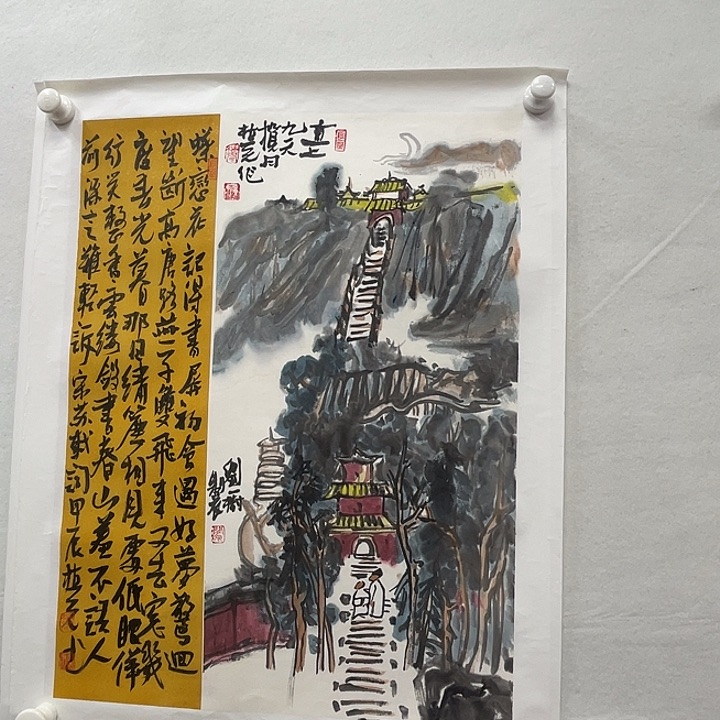 直上
九天
攬月
蝶戀花記得畫屏初會遇好夢驚迴
望斷高唐路燕子雙飛來又去窗幾
度春光暮那日繡簾相見處低眼佯
行笑整香雲縷斂盡春山羞不語人
前深意難輕訴宋蘇軾詞甲辰